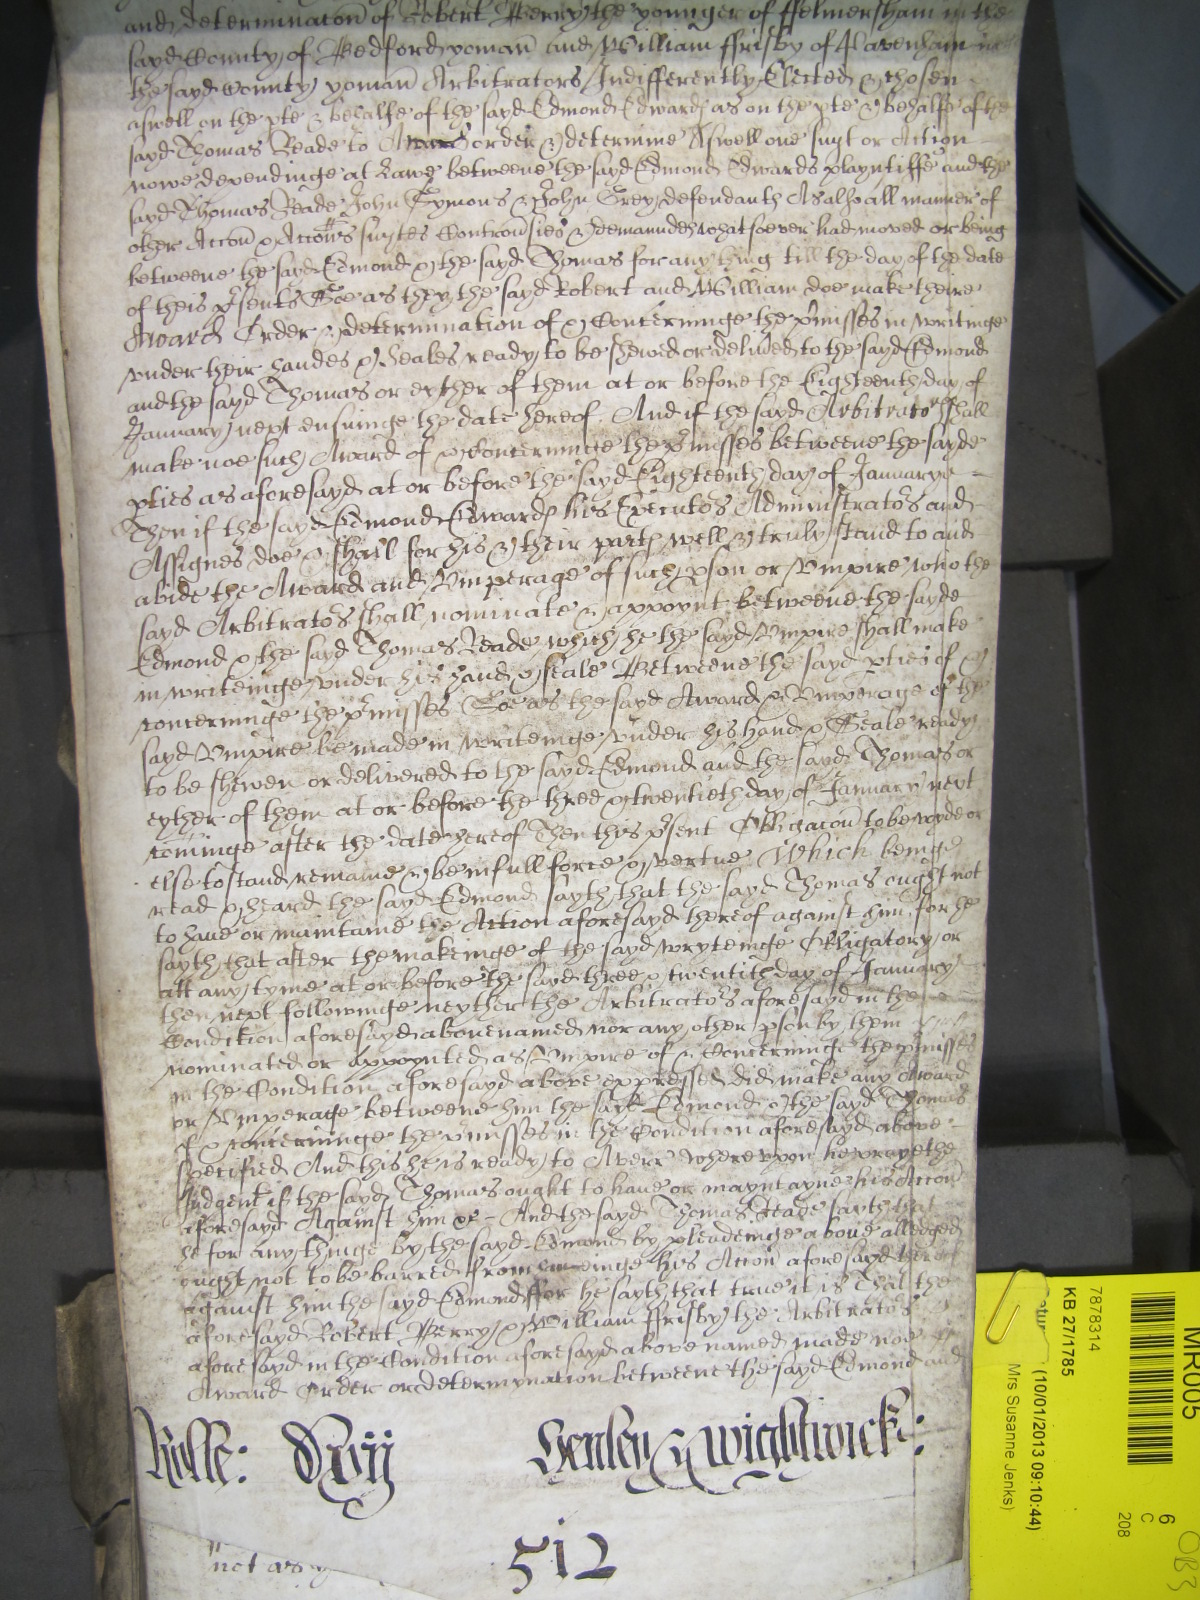 and determinacon of Robert Perry the younger of ffelmersham in the
sayd County of Bedford yoman and William ffrisby of Pavenham in
the sayd County yoman Arbitrators Indifferently Elected & chosen
aswell on the pte & behalfe of the sayd Edmond Edwards as on the pte & behalfe of the
sayd Thomas Reade to Award order & determine Aswell one suyt or Action
nowe dependinge at Lawe betweene the sayd Edmond Edwards playntiffe and the
sayd Thomas Reade John Symons & John Grey defendants As also all manner of
other Accon & Accons suytes Controusies & demaundes whatsoever had moved or being
betweene the sayd Edmond & the sayd Thomas for any thing till the day of the date
of theis psents Soe as they the sayd Robert and William doe make theire
Award Order & determination of & Concerninge the pmisses in writinge
under their handes & Seales ready to be shewed or deliued to the sayd Edmond
and the sayd Thomas or eyther of them at or before the Eighteenth day of
January next ensuinge the date hereof And if the sayd Arbitrators shall
make noe such Award of & Concerninge the pmisses betweene the sayde
pties as aforesayd at or before the sayd Eighteenth day of January
Then if the sayd Edmond Edwards his Executors Administrators and
Assignes doe & shall for his & their parts well & truly stand to and
abide the Award and Vmperage of such pson or Vmpire who the
sayd Arbitrators shall nominate & appoynt betweene the sayde
Edmond & the sayd Thomas Reade which he the sayd Vmpire shall make
in writeinge under his hand & seale Betweene the sayd pties of &
concerninge the pmisses Soe as the sayd Award & Vmperage of the
sayd Vmpire be made in writeinge under his hand & Seale ready
to be shewen or delivered to the sayd Edmond and the sayd Thomas or
eyther of them at or before the three & twentieth day of January next
cominge after the date hereof Then this psent Obligacon to be voyde or
else to stand remaine & be in full force & vertue Which beinge
read & heard the sayd Edmond sayth that the sayd Thomas ought not
to haue or maintaine the Action aforesayd thereof against him for he
sayth that after the makeinge of the sayd wryteinge Obligatory or
att any tyme at or before the sayd three & twentith day of January
then next followinge neyther the Arbitrators aforesayd in the
Condition aforesayd above named nor any other pson by them
nominated or appoynted as Vmpire of & Concerninge the pmisses
in the Condition aforesayd above expressed did make any Award
or Vmperage betweene him the sayd Edmond & the sayd Thomas
of & concerninge the pmisses in the Condition aforesayd above
specified And this he is ready to Averr whereupon he prayeth
Judgent if the sayd Thomas ought to haue or mayntayne his Accon
aforesayd Against him &c And the sayd Thomas Reade sayth that
he for any thinge by the sayd Edmond by pleadeinge aboue alledged
ought not to be barred from haveinge his Accon aforesayd thereof
against him the sayd Edmond ffor he sayth that true it is That the
aforesayd Robert Perry & William ffrisby the Arbitrators
aforesayd in the Condition aforesayd above named made noe
Award Order or determynation betweene the sayd Edmond and
Rolle: Henley & Wightwick:
512
not as
MR005
7878314
KB 27/1785
(10/01/2013 09:10:44)
Mrs Susanne Jenks)
6
C
208